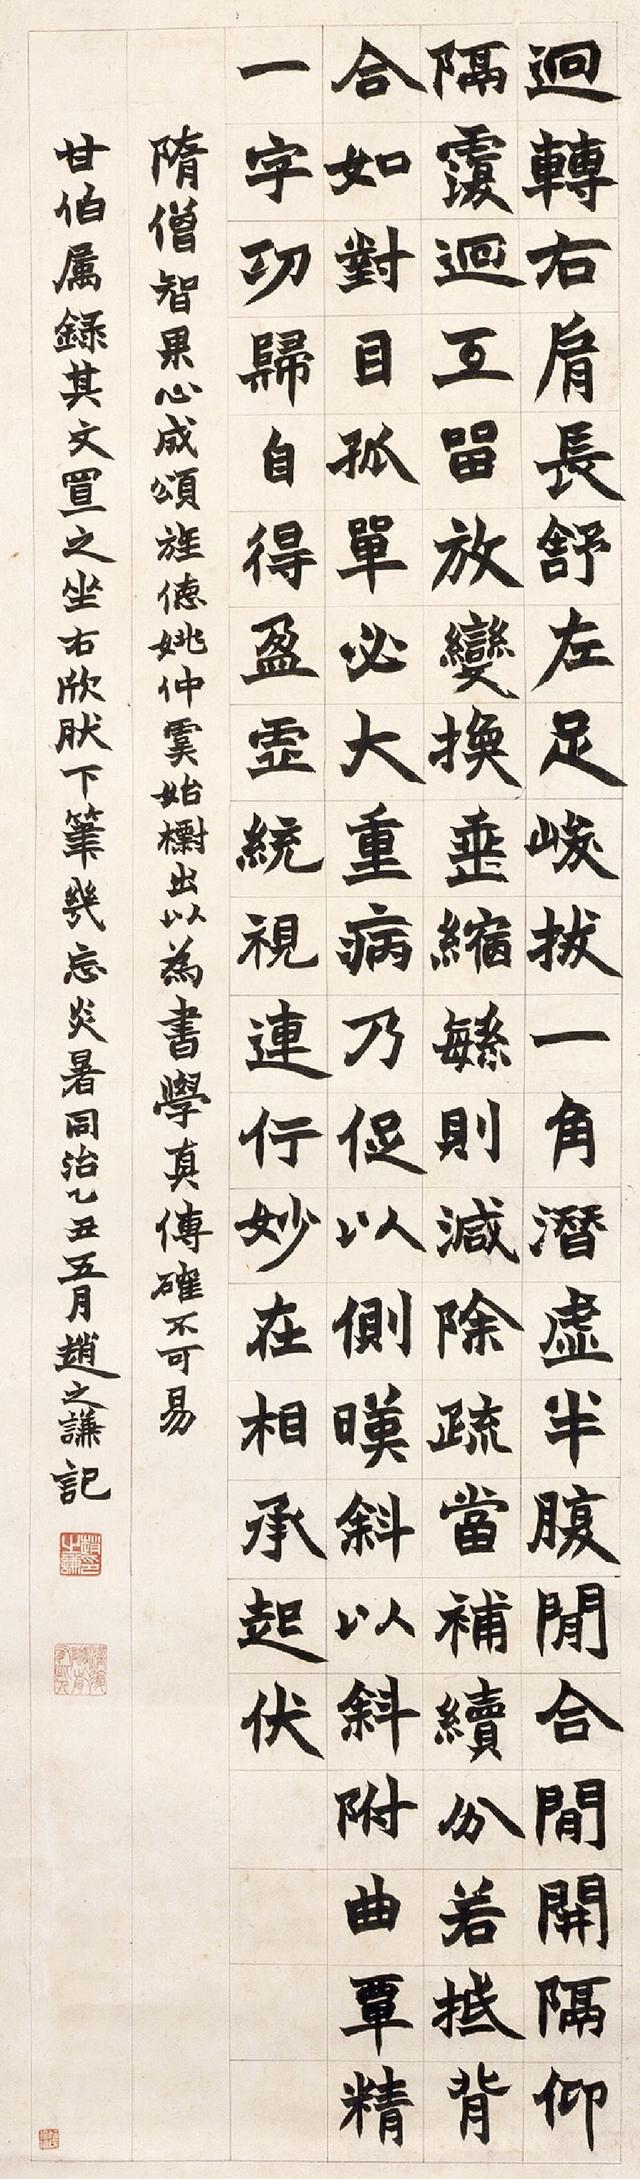 迴轉右肩長舒左足峻拔一角潛虛半腹閒合閒開隔仰
隔覆迴互留放變換垂縮繁則減除疏當補續分若抵背
合如對目孤單必大重病乃促以側暎斜以斜附曲覃精
一字功歸自得盈虛統視連行妙在相承起伏
隋僧智果心成頌旌德姚仲虞始櫥出以為書學真傳確不可易
甘伯属録其文置之坐右欣肰下筆幾忘炎暑同治乙丑五月趙之謙記